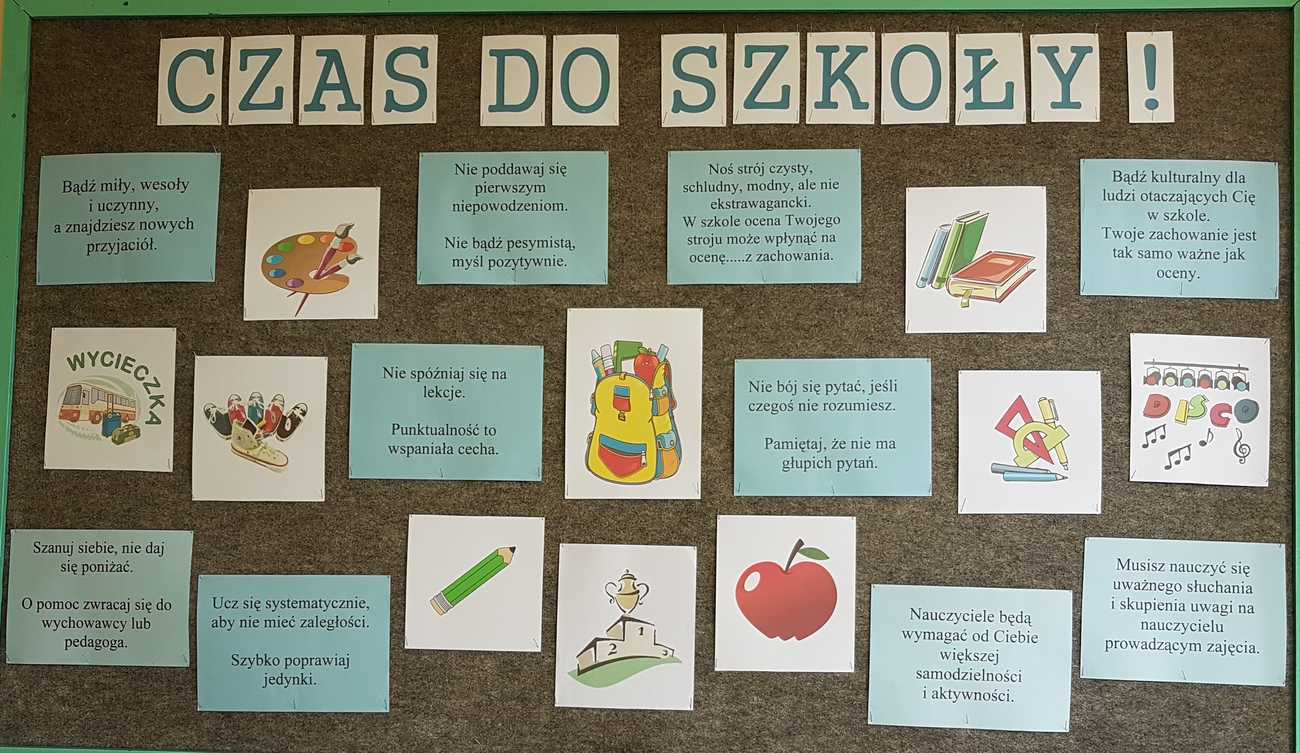 CZAS DO SZKOŁY !
Bądź miły, wesoły
i uczynny,
a znajdziesz nowych
przyjaciół.
Nie poddawaj się
pierwszym
niepowodzeniom.
Nie bądź pesymistą,
myśl pozytywnie.
Noś strój czysty,
schludny, modny, ale nie
ekstrawagancki.
W szkole ocena Twojego
stroju może wpłynąć na
ocenę.....z zachowania.
Bądź kulturalny dla
ludzi otaczających Cię
w szkole.
Twoje zachowanie jest
tak samo ważne jak
oceny.
WYCIECZKA
Nie spóźniaj się na
lekcje.
Punktualność to
wspaniała cecha.
Nie bój się pytać, jeśli
czegoś nie rozumiesz.
Pamiętaj, że nie ma
głupich pytań.
DISCO
Szanuj siebie, nie daj
się poniżać.
O pomoc zwracaj się do
wychowawcy lub
pedagoga.
Ucz się systematycznie,
aby nie mieć zaległości.
Szybko poprawiaj
jedynki.
1
2
3
Nauczyciele będą
wymagać od Ciebie
większej
samodzielności
i aktywności.
Musisz nauczyć się
uważnego słuchania
i skupienia uwagi na
nauczycielu
prowadzącym zajęcia.